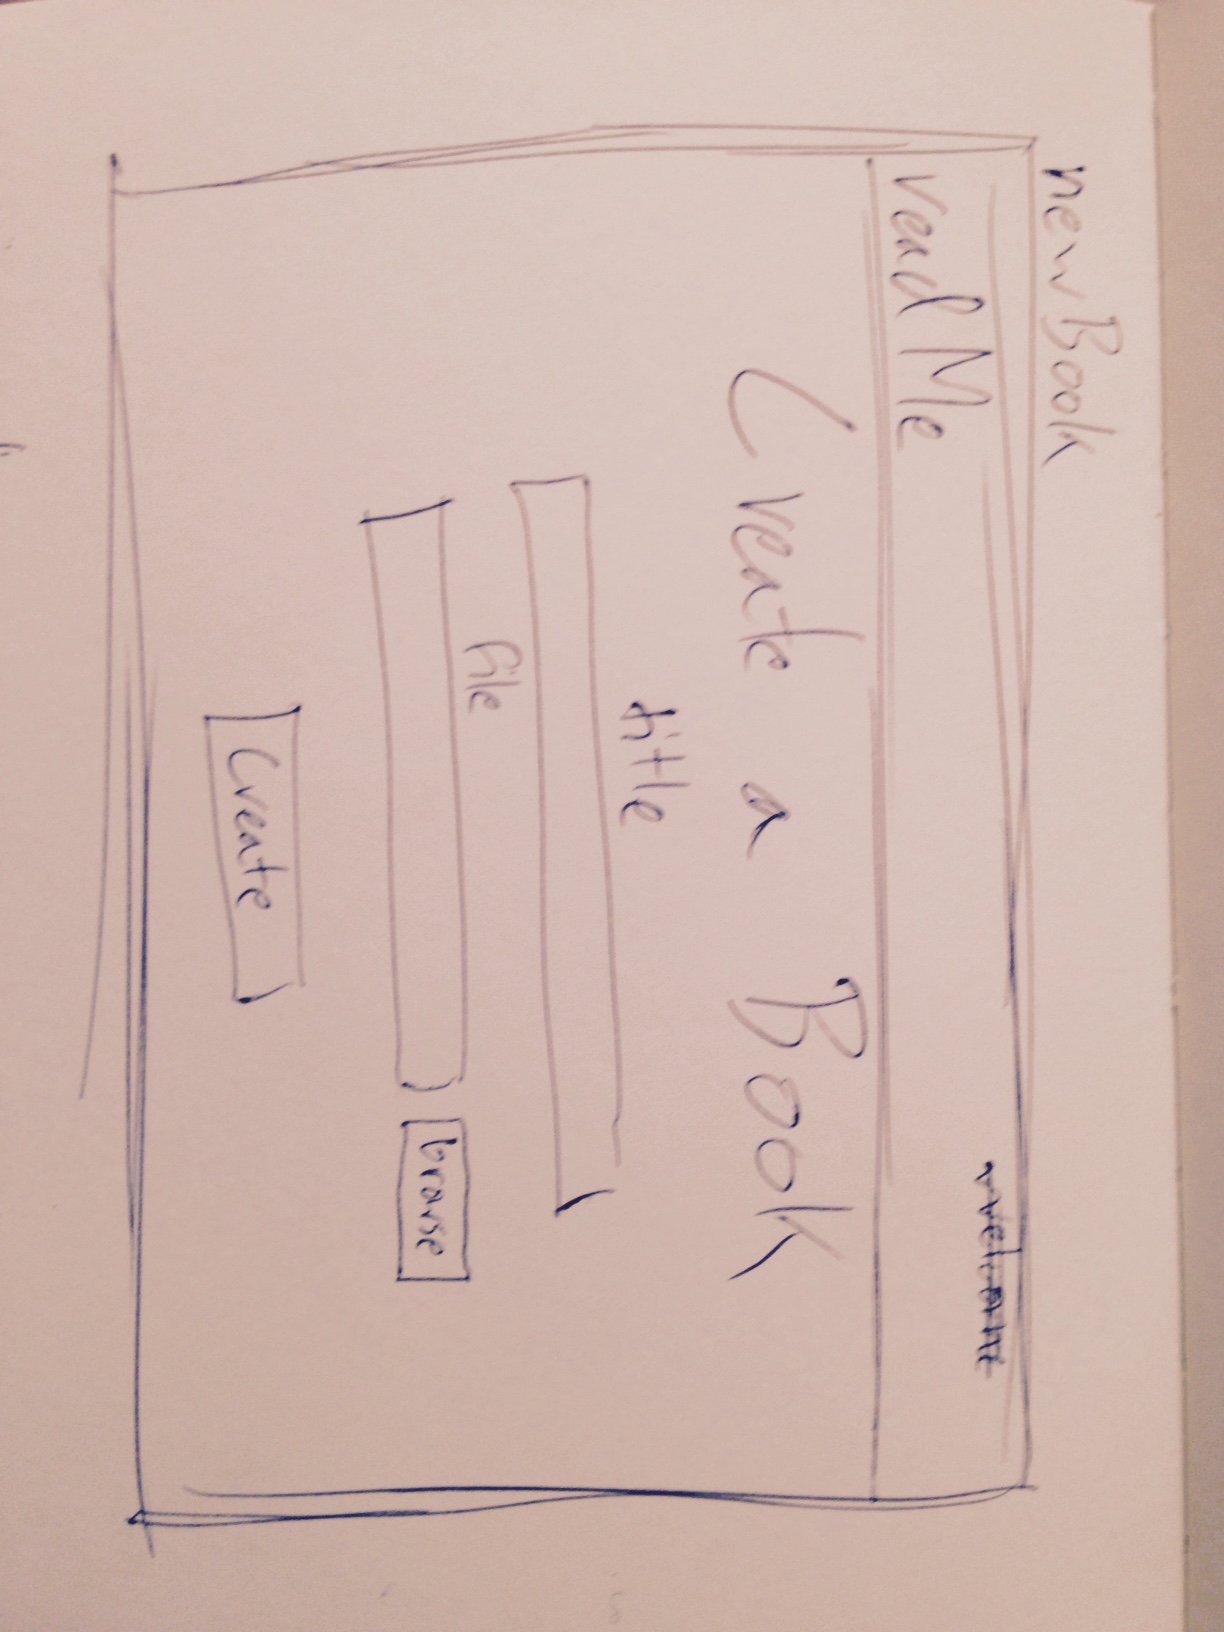 newBook
readMe
Create a Book
title
file
browse
Create